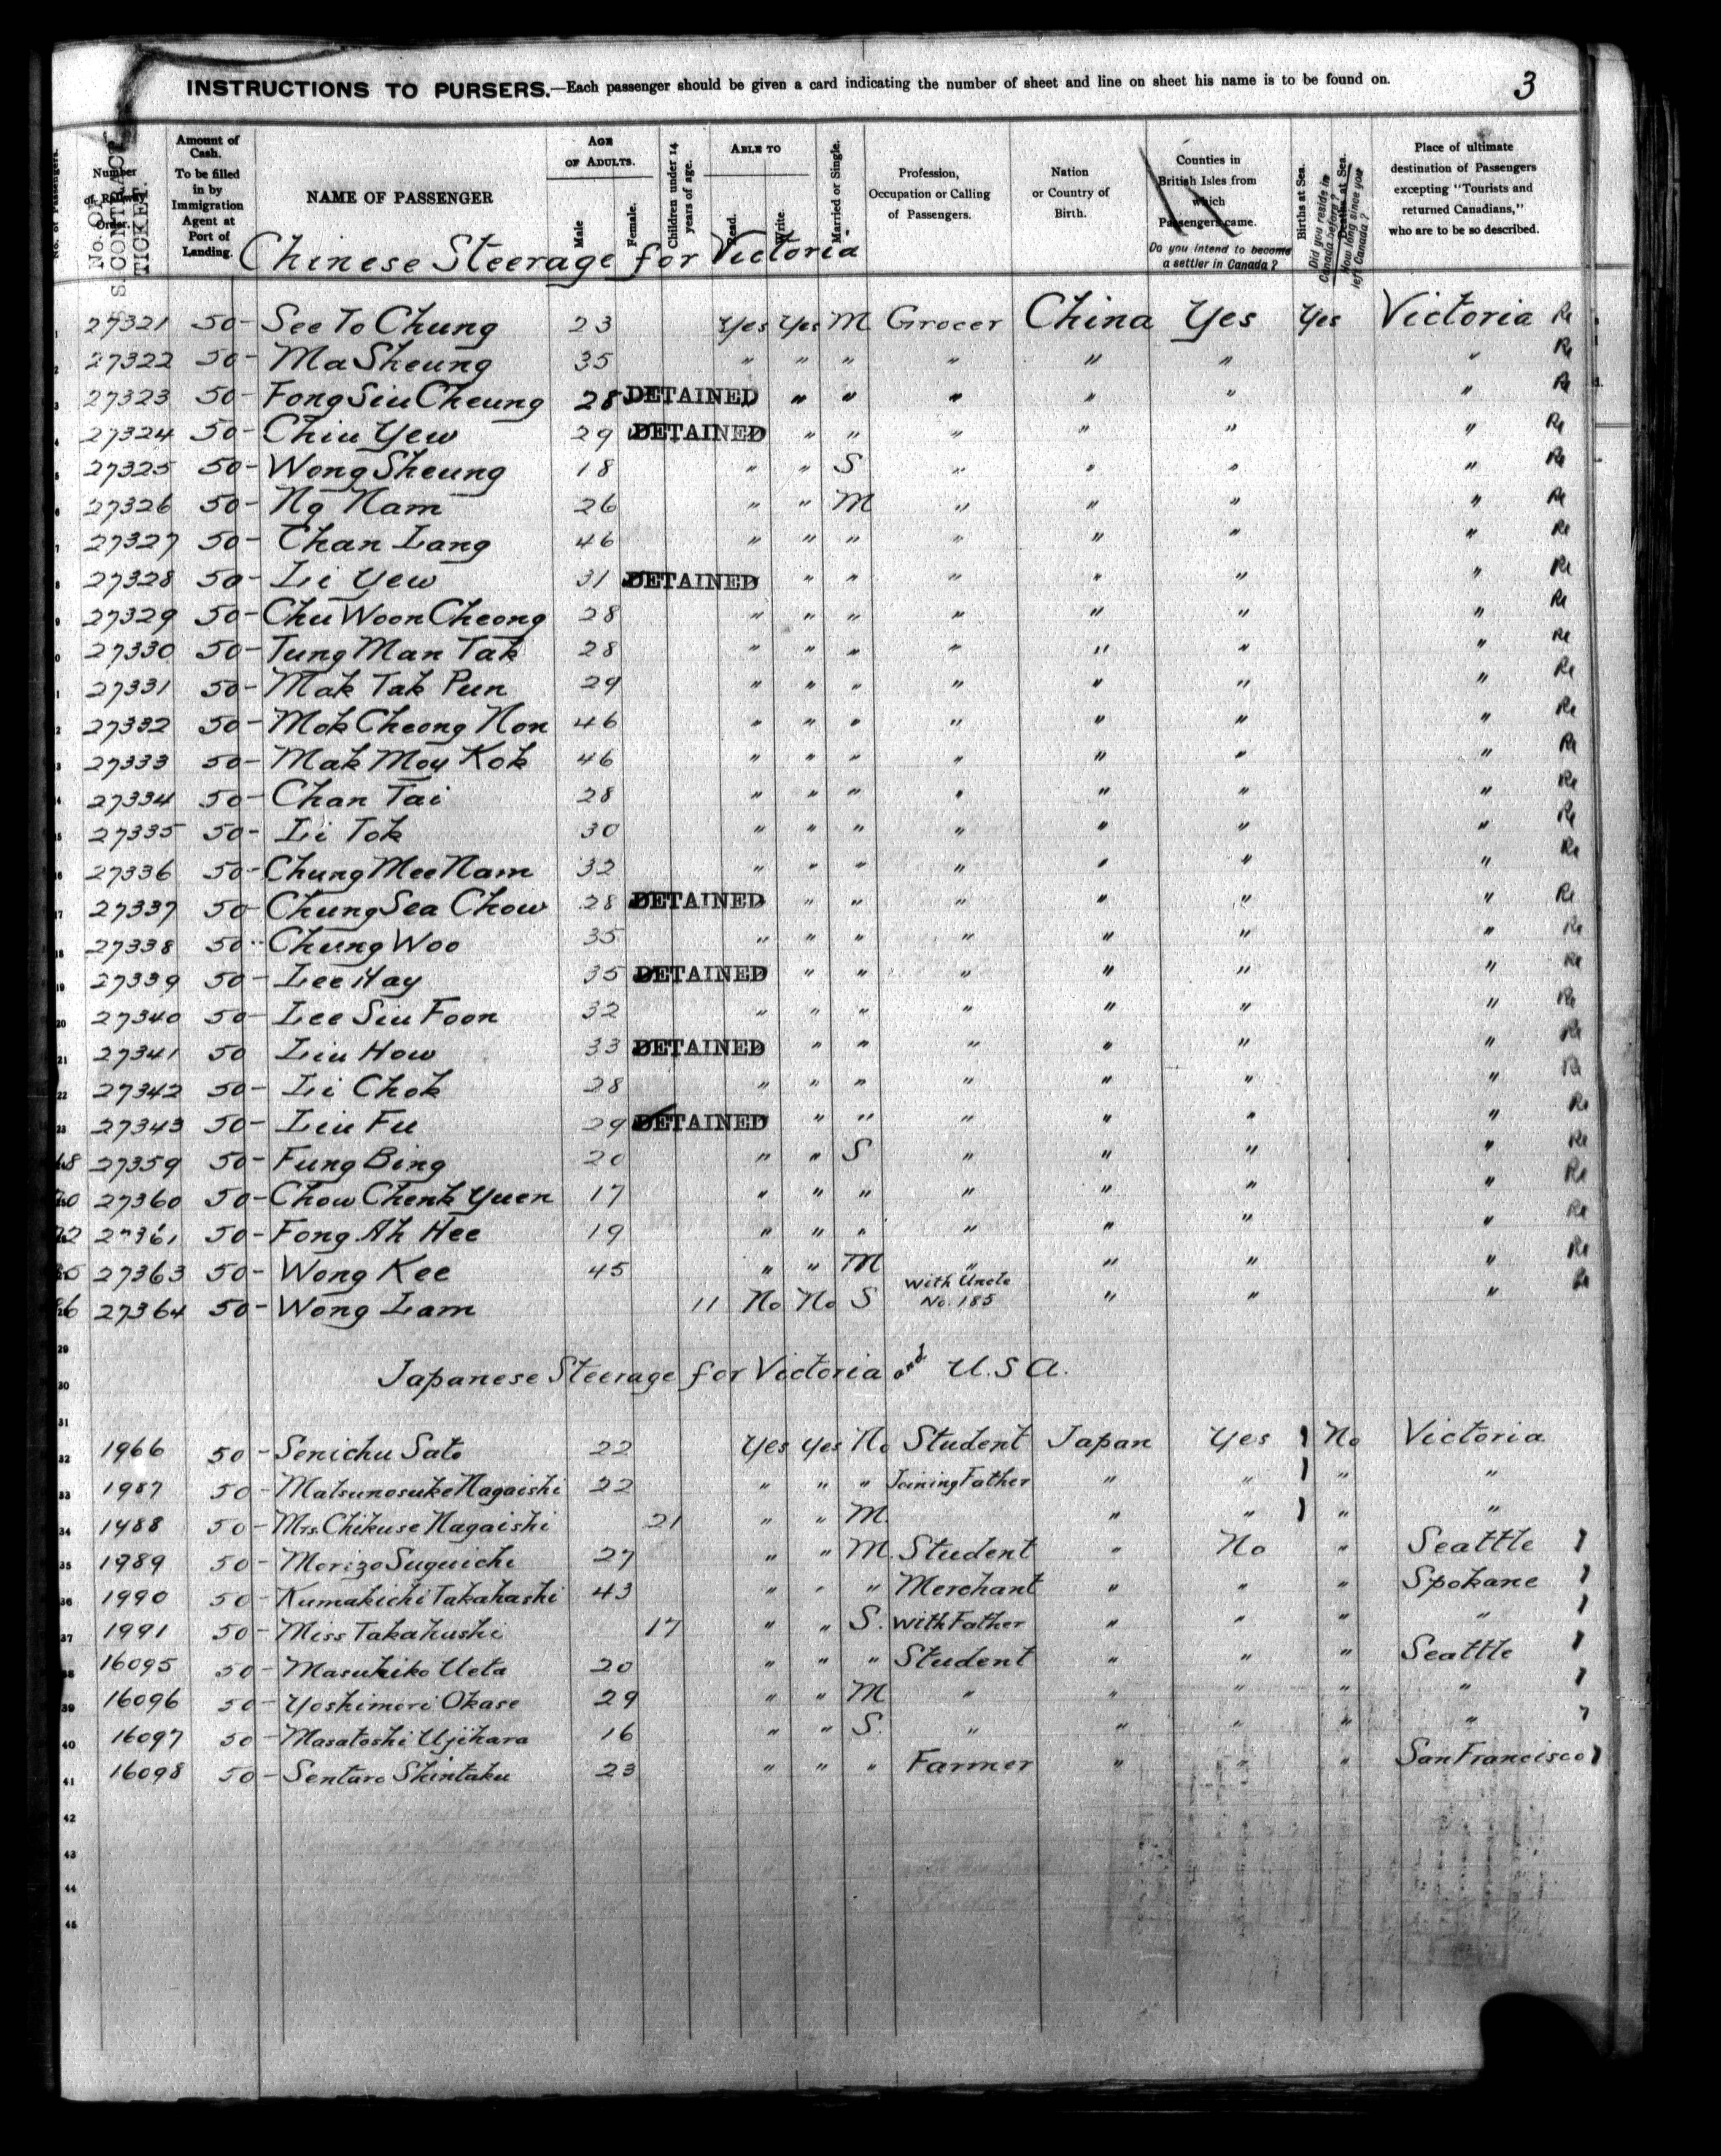 INSTRUCTIONS TO PURSERS.—Each passenger should be given a card indicating the number of sheet and line on sheet his name is to be found on.
3
No. of Passengers.
Number of Railway Order.
No. OF CONTRACT TICKET.
Amount of Cash. To be filled in by Immigration Agent at Port of Landing.
NAME OF PASSENGER
AGE OF ADULTS.
Male
Female.
Children under 14 years of age.
ABLE TO
Read.
Write.
Married or Single.
Profession, Occupation or Calling of Passengers.
Nation or Country of Birth.
Counties in British Isles from which Passengers came.
Do you intend to become a settler in Canada?
Births at Sea.
Did you reside in Canada before?
Deaths at Sea.
How long since you left Canada?
Place of ultimate destination of Passengers excepting "Tourists and returned Canadians," who are to be so described.
Chinese Steerage for Victoria
27321 50- See To Chung 23 Yes Yes M Grocer China Yes Yes Victoria Re
27322 50- Ma Sheung 35 " " " " " " " Re
27323 50- Fong Siu Cheung 28 DETAINED " " " " " " " Re
27324 50- Chiu Yew 29 DETAINED " " " " " " Re
27325 50- Wong Sheung 18 " " S " " " " Re
27326 50- Ng Nam 26 " " M " " " " Re
27327 50- Chan Lang 46 " " " " " " " Re
27328 50- Li Yew 31 DETAINED " " " " " " Re
27329 50- Chu Woon Cheong 28 " " " " " " " Re
27330 50- Tung Man Tak 28 " " " " " " " Re
27331 50- Mak Tak Pun 29 " " " " " " " Re
27332 50- Mok Cheong Non 46 " " " " " " " Re
27333 50- Mak Moy Kok 46 " " " " " " " Re
27334 50- Chan Tai 28 " " " " " " " Re
27335 50- Li Tok 30 " " " " " " " Re
27336 50- Chung Mee Nam 32 " " " " " " " Re
17 27337 50- Chung Sea Chow 28 DETAINED " " " " " " Re
18 27338 50- Chung Woo 35 " " " " " " " Re
19 27339 50- Lee Hay 35 DETAINED " " " " " " Re
20 27340 50- Lee Siu Foon 32 " " " " " " " Re
21 27341 50 Liu How 33 DETAINED " " " " " " Re
22 27342 50- Li Chok 28 " " " " " " " Re
23 27343 50- Liu Fu 29 DETAINED " " " " " " Re
27359 50- Fung Bing 20 " " S " " " " Re
27360 50- Chow Chenk Yuen 17 " " " " " " " Re
27361 50- Fong Ah Hee 19 " " " " " " " Re
27363 50- Wong Kee 45 " " M " " " " Re
27364 50- Wong Lam 11 No No S With Uncle No. 185 " " " Re
29
30 Japanese Steerage for Victoria and U.S.A.
31
32 1966 50- Senichu Sato 22 Yes Yes No Student Japan Yes No Victoria
33 1987 50- Matsunosuke Nagaishi 22 " " " Joining Father " " " "
34 1488 50- Mrs. Chikuse Nagaishi 21 " " M. " " " "
35 1989 50- Morizo Suguichi 27 " " M. Student " No " Seattle
36 1990 50- Kumakichi Takahashi 43 " " " Merchant " " " Spokane
37 1991 50- Miss Takahushi 17 " " S. With Father " " " "
38 16095 50- Masuhiko Ueta 20 " " " Student " " " Seattle
39 16096 50- Yoshimori Okase 29 " " M " " " " "
40 16097 50- Masatoshi Ujihara 16 " " S. " " " " "
41 16098 50- Sentaro Shintaku 23 " " " Farmer " " " San Francisco
42
43
44
45